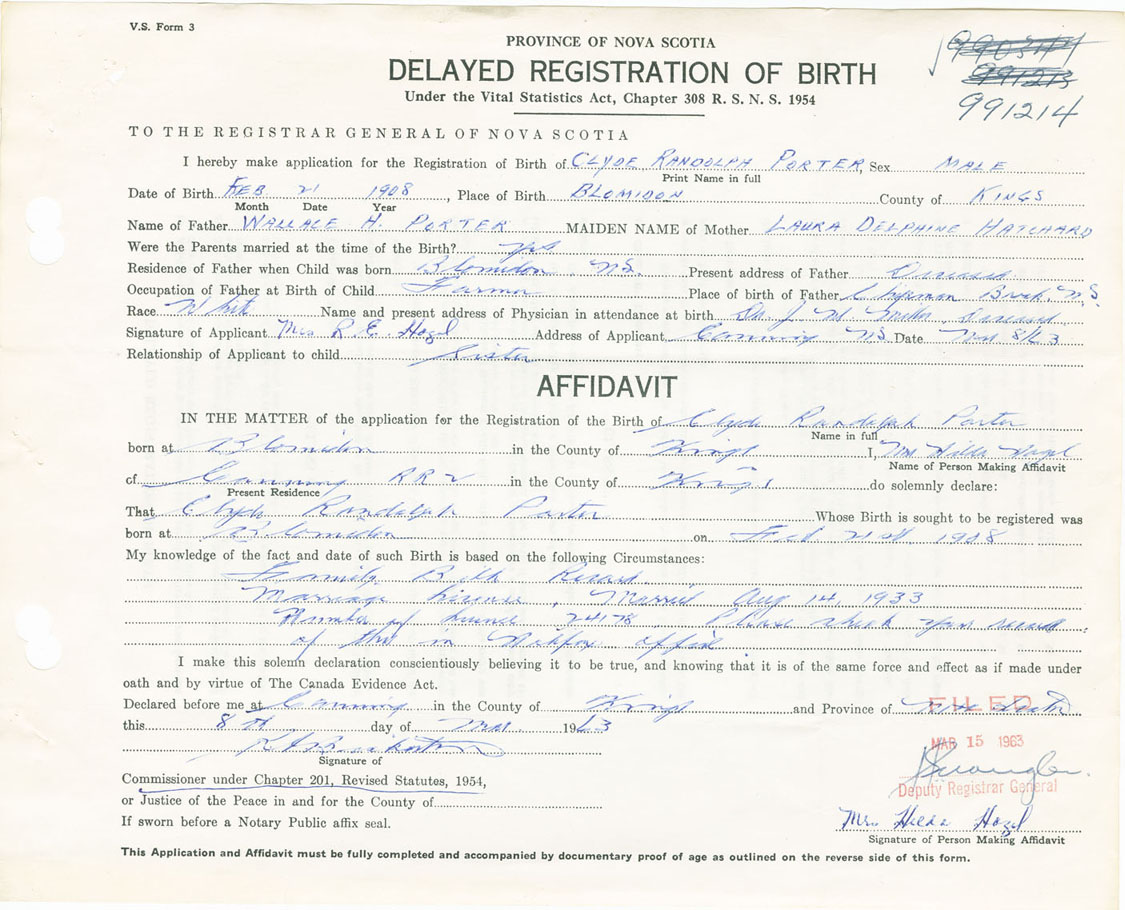 V.S. Form 3
PROVINCE OF NOVA SCOTIA
DELAYED REGISTRATION OF BIRTH
Under the Vital Statistics Act, Chapter 308 R. S. N. S. 1954
991213
991214
TO THE REGISTRAR GENERAL OF NOVA SCOTIA
I hereby make application for the Registration of Birth of CLYDE RANDOLPH PORTER, Sex MALE
Print Name in full
Date of Birth FEB. 21 1908, Place of Birth BLOMIDON County of KINGS
Month Date Year
Name of Father WALLACE H. PORTER MAIDEN NAME of Mother LAURA DELPHINE HATCHARD
Were the Parents married at the time of the Birth? yes
Residence of Father when Child was born Blomidon, N.S. Present address of Father Deceased
Occupation of Father at Birth of Child Farmer Place of birth of Father Chipman Brook N.S.
Race White Name and present address of Physician in attendance at birth Dr. J. W. Miller, Deceased
Signature of Applicant Mrs R. E. Hogel Address of Applicant Canning N.S. Date Mar 8/63
Relationship of Applicant to child Sister
AFFIDAVIT
IN THE MATTER of the application for the Registration of the Birth of Clyde Randolph Porter
Name in full
born at Blomidon in the County of Kings I, Mrs Hilda Hogel
Name of Person Making Affidavit
of Canning RR 2 in the County of Kings do solemnly declare:
Present Residence
That Clyde Randolph Porter Whose Birth is sought to be registered was
born at Blomidon on Feb 21st 1908
My knowledge of the fact and date of such Birth is based on the following Circumstances:
Family Bible Record
Marriage License, Married Aug 14, 1933
Number of License 24178. Please check your record
of this in Halifax office
I make this solemn declaration conscientiously believing it to be true, and knowing that it is of the same force and effect as if made under
oath and by virtue of The Canada Evidence Act.
Declared before me at Canning in the County of Kings and Province of Nova Scotia
FILED
this 8th day of Mar. 1963
MAR 15 1963
Signature of
Commissioner under Chapter 201, Revised Statutes, 1954,
Deputy Registrar General
or Justice of the Peace in and for the County of
Mrs Hilda Hogel
If sworn before a Notary Public affix seal.
Signature of Person Making Affidavit
This Application and Affidavit must be fully completed and accompanied by documentary proof of age as outlined on the reverse side of this form.